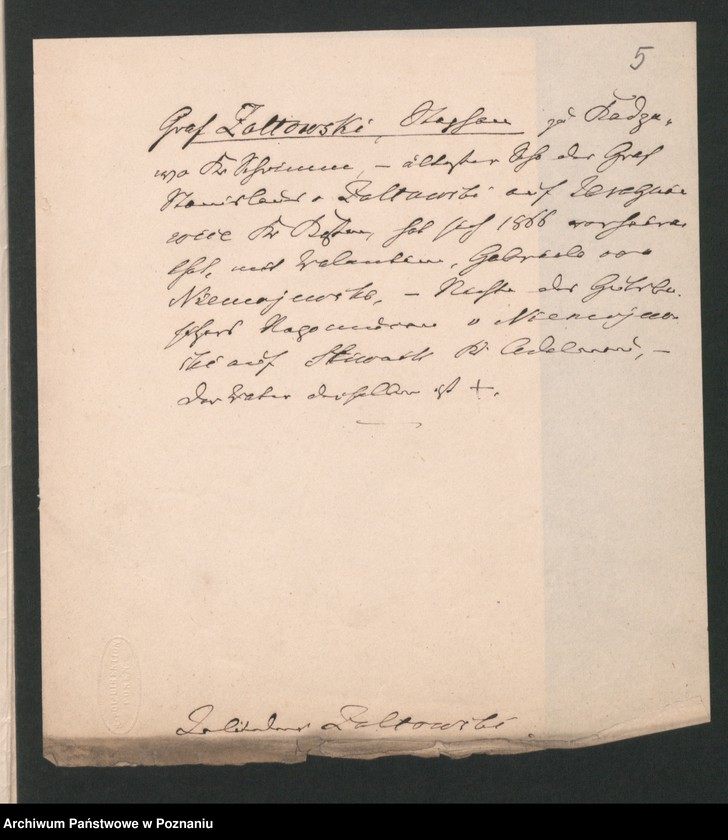 5
Graf Zoltowski, Stephan zu Kadze-
wo Kr Schrimm, – ältester Sohn des Graf
Stanislaus v Zoltowski auf
Kr Kosten, hat sich 1866 verheira-
thet, mit Valentine, Gabriele von
Niemojewska, – Nichte des Gutsbe-
sitzers v Niemojew-
ski auf Kr Adelnau, –
der Vater derselben ist +.
Zoltowski
Archiwum Państwowe w Poznaniu